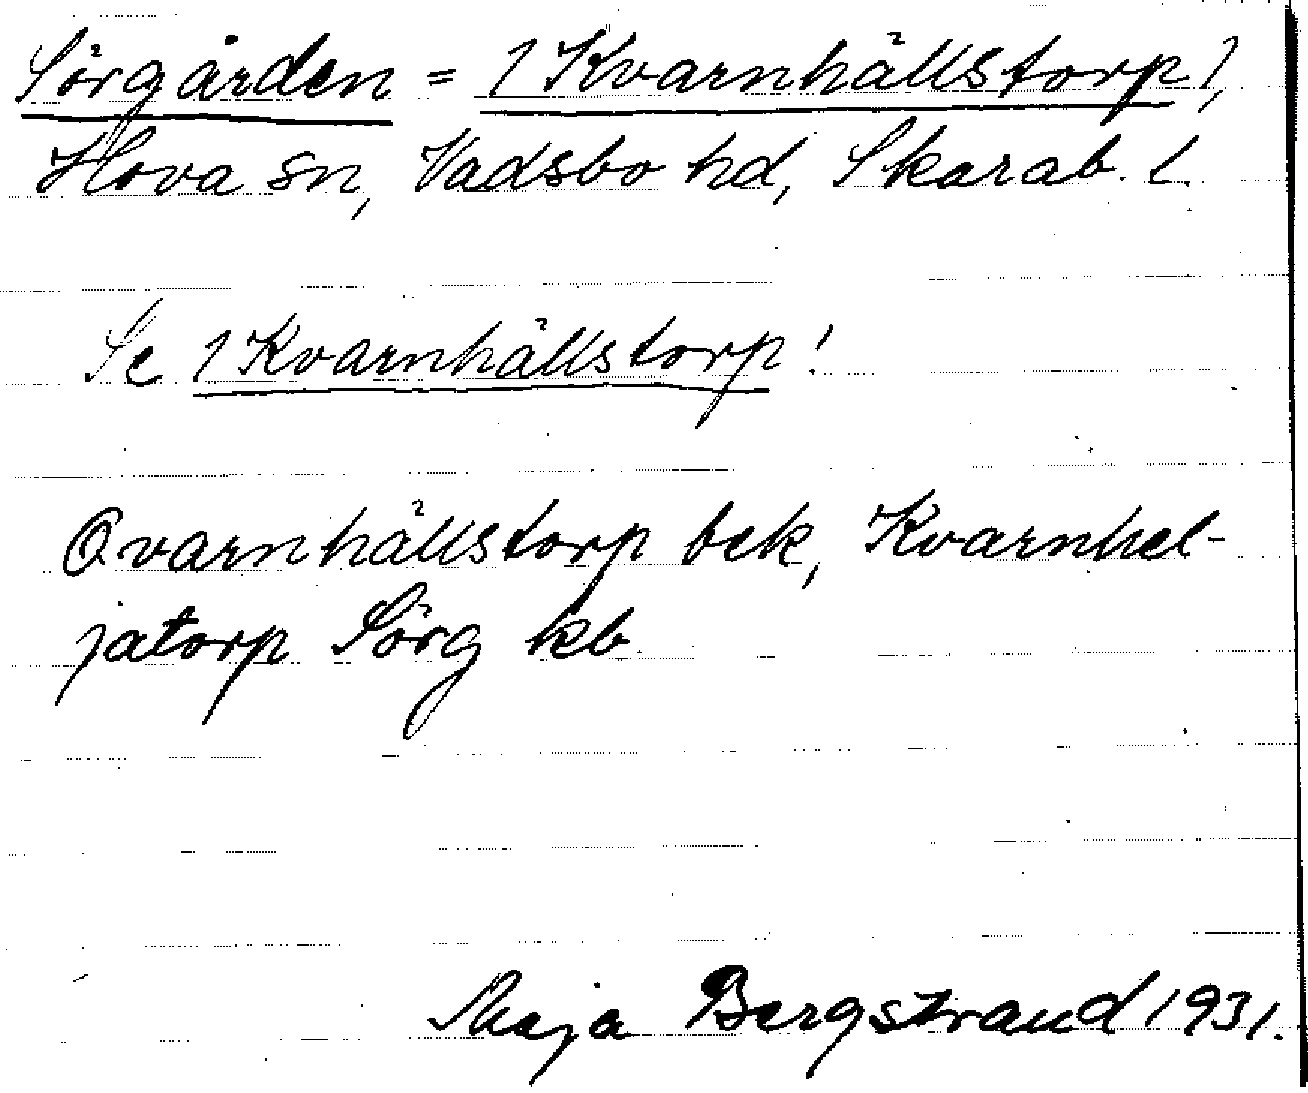 Sörgården = 1 Kvarnhällstorp 1,
Hova sn, Vadsbo hd, Skarab. l.
Se 1 Kvarnhällstorp!
Qvarnhällstorp bek, Kvarnhel-
jatorp Sörg kb
Maja Bergstrand 1931.